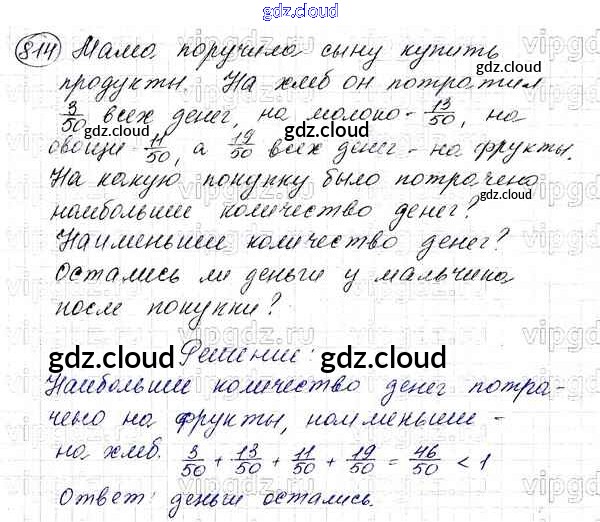 gdz.cloud
814 Мама поручила сыну купить
продукты. На хлеб он потратил
3/50 всех денег, на молоко - 13/50, на
овощи - 11/50, а 19/50 всех денег - на фрукты.
На какую покупку было потрачено
наибольшее количество денег?
Наименьшее количество денег?
Остались ли деньги у мальчика
после покупки?
Решение:
Наибольшее количество денег потра-
чено на фрукты, наименьшее -
на хлеб. 3/50 + 13/50 + 11/50 + 19/50 = 46/50 < 1
Ответ: деньги остались.